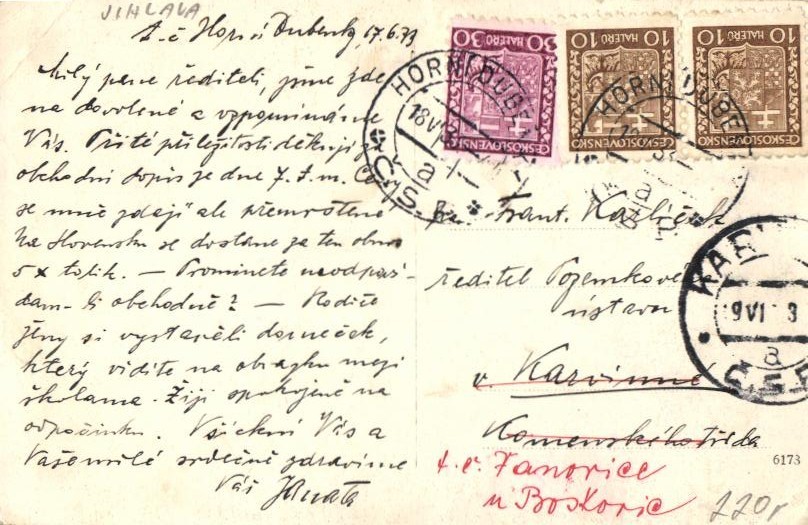 JIHLAVA
t.č. Horní Dubenky, 17.6.33
Milý pane řediteli, jsme zde
na dovolené a vzpomínáme
Vás. Při té příležitosti děkuji za
obchodní dopis ze dne 7. t.m.
se mně zdají ale přemrštěné
Na Slovensku se dostane za ten obnos
5 x tolik. — Prominete neodpoví-
dám-li obchodně? — Rodiče
ženy si vystavěli domeček,
který vidíte na obrázku mezi
školama. Žijí spokojeně na
odpočinku. Všickni Vás a
Vašemilé srdečně zdravíme
Váš
30 HALERU 30
ČESKOSLOVENSKO
10 HALERU 10
ČESKOSLOVENSKO
10 HALERU 10
ČESKOSLOVENSKO
HORNÍ DUBE
18 VI
a
Č.S.R.
HORNÍ DUBE
a
p. Frant. Karlíček
ředitel Pozemkové
ústavu
v Karvinné
Komenského třída
t. č. Janovice
u Boskovic
KARV
9 VI 3
a
Č.S.R.
6173
220,-